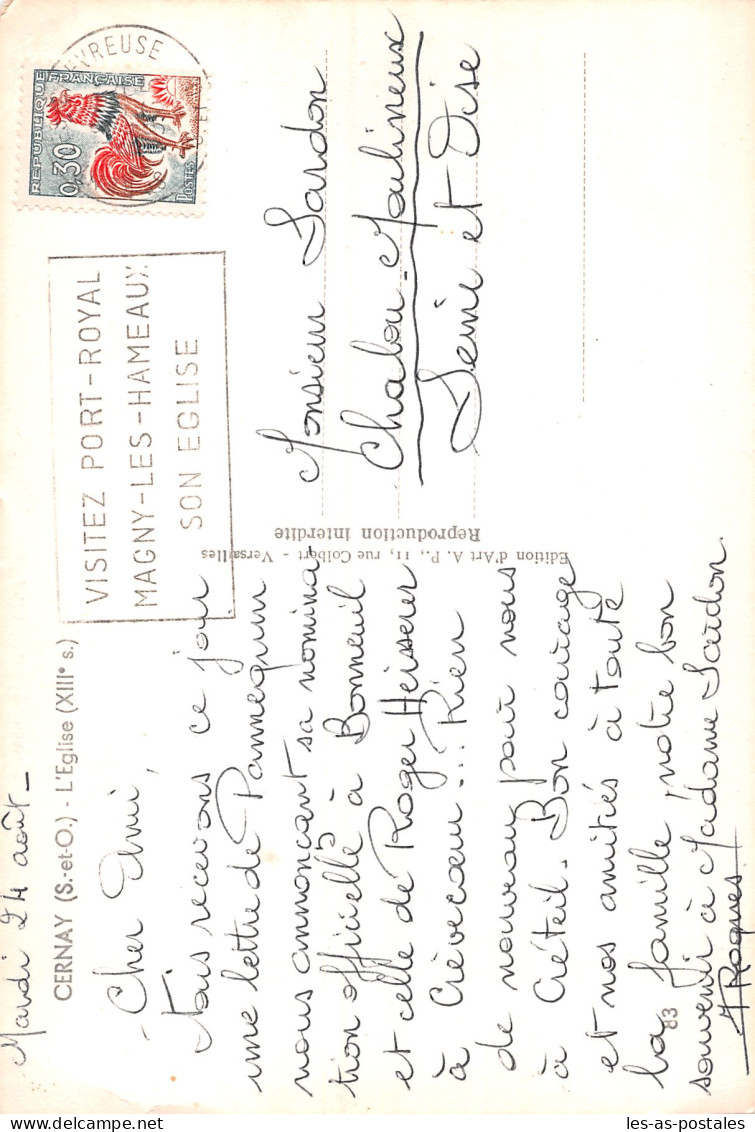 Mardi 24 août -
CERNAY (S.-et-O.) - L'Eglise (XIIIe s.)
Cher Ami,
Nous recevons ce jour
une lettre de Pannequin
nous annonçant sa nomina-
tion officielle à Bonneuil
et celle de Roger Heisserer
à Crèvecœur... Rien
de nouveau pour nous
à Créteil. Bon courage
et nos amitiés à toute
la famille, notre bon
souvenir à Madame Sardon.
Roques
83
Edition d'Art A. P., 11, rue Colbert - Versailles
Reproduction interdite
VISITEZ PORT-ROYAL
MAGNY-LES-HAMEAUX
SON EGLISE
EVREUSE
REPUBLIQUE FRANÇAISE
0,30
POSTES
Monsieur Sardon
Chalou-Moulineux
Seine et Oise
les-as-postales.com